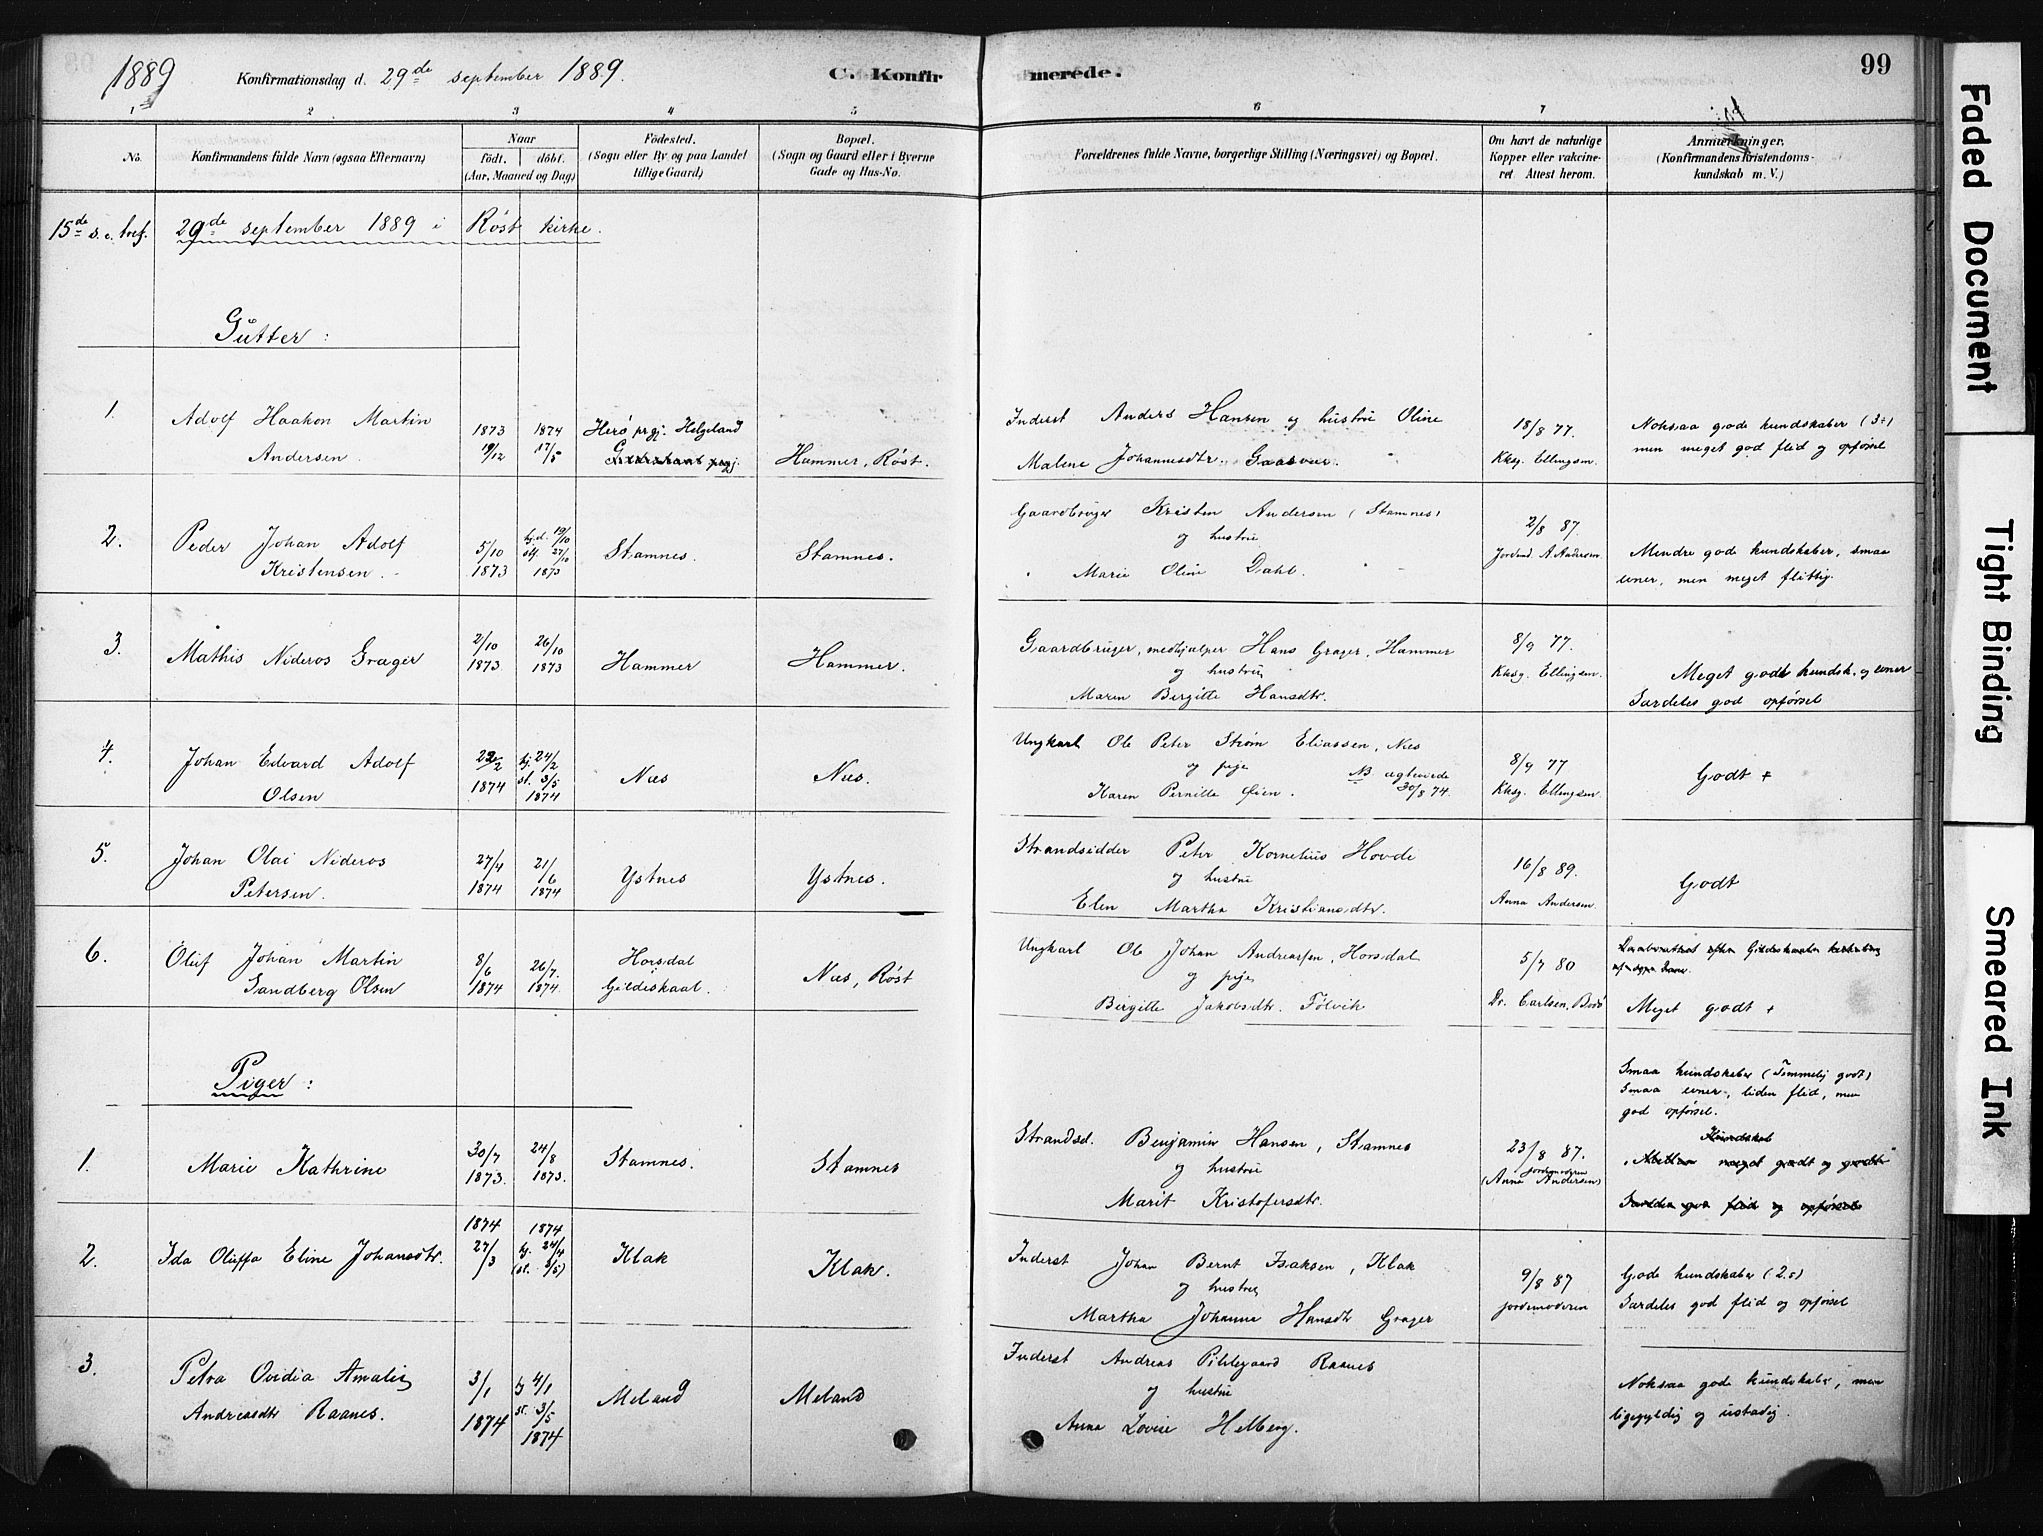 1889 Konfirmationsdag d. 29de september 1889. C. Konfirmerede. 99
1 2 3 4 5 6 7
No.
Konfirmandens fulde Navn (ogsaa Efternavn)
Naar
født. døbt.
(Aar, Maaned og Dag)
Fødested.
(Sogn eller By og paa Landet
tillige Gaard)
Bopæl.
(Sogn og Gaard eller i Byerne
Gade og Hus-No.
Forældrenes fulde Navne, borgerlige Stilling (Næringsvei) og Bopæl.
Om havt de naturlige
Kopper eller vakcine-
ret. Attest herom.
Anmærkninger.
(Konfirmandens Kristendoms-
kundskab m. V.)
15de s. e. tref. 29de september 1889 i Røst kirke.
Gutter:
1. Adolf Haakon Martin
Andersen.
1873
19/12
1874
17/5
Herø prgj. Helgeland
prgj.
Hammer, Røst.
Inderst Anders Hansen og hustru Oline
Malene Johannesdtr. Gaasvær.
18/8 77.
Kksg. Ellingsen.
Noksaa gode kundskaber (3+)
men meget god flid og opførsel
2. Peder Johan Adolf
Kristensen.
5/10
1873
hj.d. 19/10
stf. 27/10
1873
Stamnes.
Stamnes.
Gaardbruger Kristen Andersen (Stamnes)
og hustru
Marie Oline Dahl.
2/8 87.
Jordmd. A. Andersen
Mindre gode kundskaber, smaa
evner, men meget flittig.
3. Mathis Nideros Grager
2/10
1873
26/10
1873
Hammer
Hammer.
Gaardbruger, medhjælper Hans Grager, Hammer
og hustru
Maren Birgitte Hansdtr.
8/9 77.
Kksg. Ellingsen.
Meget godt kundsk. og evner
Særdeles god opførsel
4. Johan Edvard Adolf
Olsen
22/2
1874
hj. 24/2
st. 3/5
1874
Næs
Næs.
Ungkarl Ole Peter Strøm Eliassen, Næs
og pige NB ægteviede
Karen Pernille Øien. 30/8 74.
8/9 77
Kksg. Ellingsen.
Godt +
5. Johan Olai Nideros
Petersen.
27/4
1874
21/6
1874
Ystnes
Ystnes.
Strandsidder Peter Kornelius Hovde
og hustru
Elen Martha Kristiansdtr.
16/8 89.
Anna Andersen.
Godt
6. Oluf Johan Martin
Sandberg Olsen
8/6
1874
26/7.
1874.
Horsdal
Gildeskaal.
Næs, Røst
Ungkarl Ole Johan Andreassen, Horsdal
og pige
Birgitte Jakobsdtr. Følvik
5/7 80
Dr. Carlsen, Bodø
Daabsattest efter Gildeskaals
Meget godt +
Piger:
1. Marie Kathrine
30/7
1873.
24/8
1873.
Stamnes.
Stamnes
Strandsd. Benjamin Hansen, Stamnes
og hustru
Marit Kristofersdtr.
23/8 87.
jordmoderen
(Anna Andersen)
Smaa kundskaber (Temmelig godt)
Smaa evner, liden flid, men
god opførsel.
Kundskab
meget godt og godt
god flid og opførsel
2. Ida Oluffa Eline Johansdtr.
1874
27/3
1874
hj. 24/4
(st. 3/5)
Klak
Klak.
Inderst Johan Bernt Isaksen, Klak
og hustru
Martha Johanna Hansdtr Grager
9/8 87
jordemoderen
Gode kundskaber (2.5)
Særdeles god flid og opførsel
3. Petra Ovidia Amalie
Andreasdtr Raanes.
3/1
1874
hj 4/1
st. 3/5
1874
Meland
Meland
Inderst Andreas Pildegaard Raanes
og hustru
Anna Lovise Helberg.
Noksaa gode kundskaber, men
ligegyldig og ustadig.
Faded Document
Tight Binding
Smeared Ink